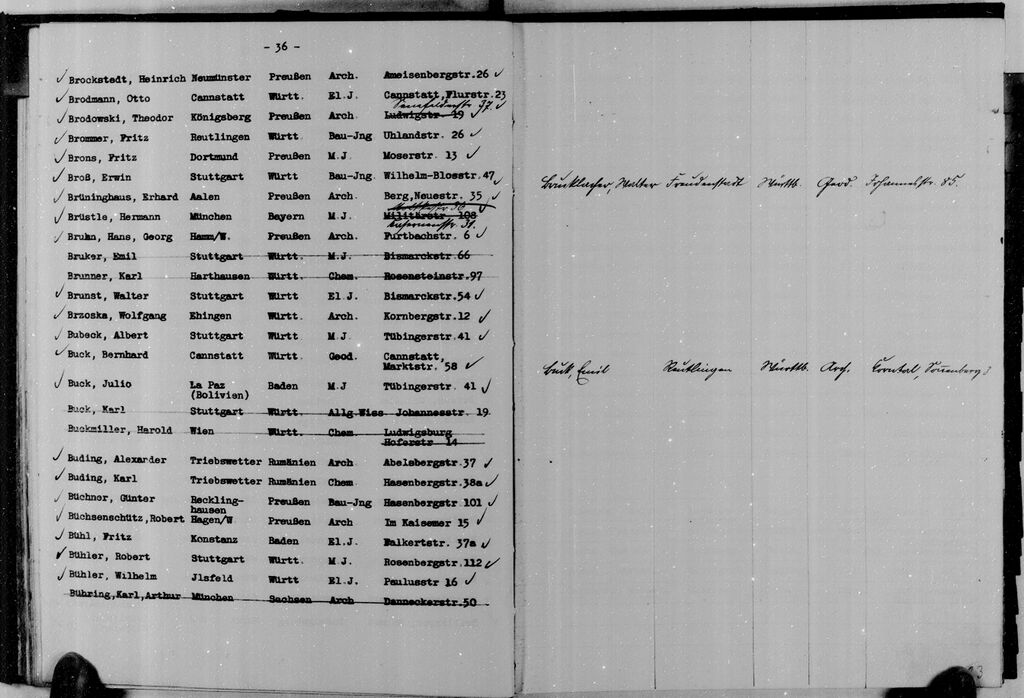 - 36 -
Brockstedt, Heinrich Neumünster Preußen Arch. Ameisenbergstr.26
Brodmann, Otto Cannstatt Württ. El.J. Cannstatt,Flurstr.23
37
Brodowski, Theodor Königsberg Preußen Arch Ludwigstr 19
Brommer, Fritz Reutlingen Württ Bau-Jng Uhlandstr. 26
Brons, Fritz Dortmund Preußen M.J. Moserstr. 13
Broß, Erwin Stuttgart Württ Bau-Jng. Wilhelm-Blosstr.47
Brüninghaus, Erhard Aalen Preußen Arch. Berg,Neuestr. 35
Brüstle, Hermann München Bayern M.J. Militärstr 108
31.
Bruhn, Hans, Georg Hamm/W. Preußen Arch. Furtbachstr. 6
Bruker, Emil Stuttgart Württ. M.J. Bismarckstr.66
Brunner, Karl Harthausen Württ. Chem. Rosensteinstr.97
Brunst, Walter Stuttgart Württ El.J. Bismarckstr.54
Brzoska, Wolfgang Ehingen Württ. Arch. Kornbergstr.12
Bubeck, Albert Stuttgart Württ M.J Tübingerstr.41
Buck, Bernhard Cannstatt Württ Geod. Cannstatt,
Marktstr. 58
Buck, Julio La Paz Baden M.J Tübingerstr. 41
(Bolivien)
Buck, Karl Stuttgart Württ. Allg.Wiss Johannesstr. 19.
Buckmiller, Harold Wien Württ. Chem Ludwigsburg
Hoferstr 14
Buding, Alexander Triebswetter Rumänien Arch Abelsbergstr.37
Buding, Karl Triebswetter Rumänien Chem Hasenbergstr.38a
Büchner, Günter Reckling- Preußen Bau-Jng Hasenbergstr.101
hausen
Büchsenschütz,Robert Hagen/W Preußen Arch Im Kaisemer 15
Bühl, Fritz Konstanz Baden El.J. Falkertstr. 37a
Bühler, Robert Stuttgart Württ. M.J. Rosenbergstr.112
Bühler, Wilhelm Jlsfeld Württ El.J. Paulusstr 16
Bühring,Karl,Arthur München Sachsen Arch Danneckerstr.50
Walter Freudenstadt Württb. Geod. Johannesstr. 85.
Buck, Emil Reutlingen Württb. Arch. Korntal,